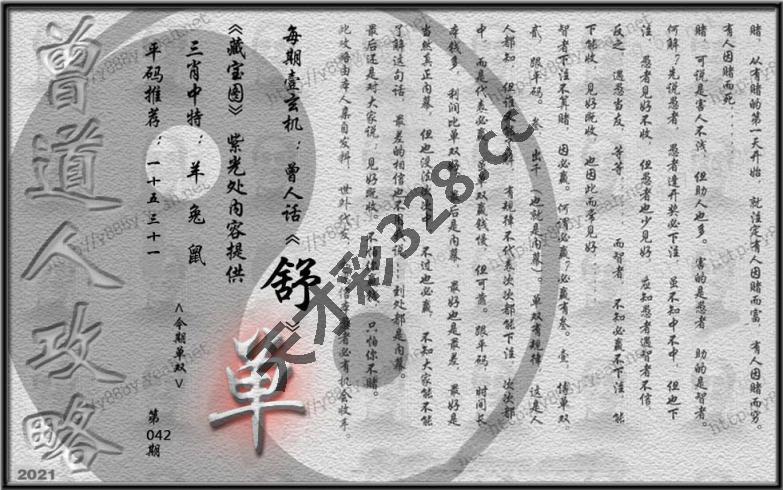 赌，从有赌的第一天开始，就注定有人因赌而富，有人因赌而穷。
有人因赌而死……
赌，可说是害人不浅，但助人也多。害的是愚者，助的是智者。
何解？先说愚者，愚者逢开奖必下注，虽不知中不中，但也下
注，愚者见好不收，但愚者也少见好，应知愚者遇智者不信，
反之，遇愚当友，等等，而智者，不知必赢不下注，能
下能收，见好既收，也因此而常见好……
智者下注不算赌，因必赢。何谓必赢？必赢有叁。壹，缚单双
贰，跟平码。叁，出千（也就是内幕）。单双有规律，这是人
人都知，有规律不代表次次都能下注，次次都
中，而是代表必赢，
本钱多，利润比单双好，最后是内幕，最好也是最差，最好是
当然真正内幕，但也没法次次中，不过也必赢，不知大家能不能
了解这句话，最差的相信也不用我说……到处都是内幕。
最后还是对大家说：见好既收。不怕你赢钱，只怕你不赌。
此攻略由本人亲自发料，世外代发，必有机会收年。
每期壹玄机：曾人话《舒》
《藏宝图》紫光处内容提供
三肖中特：羊兔鼠
平码推荐：一十五三十一
<今期单双>
单
第
042
期
曾道人攻略
2021
天才彩328.cc